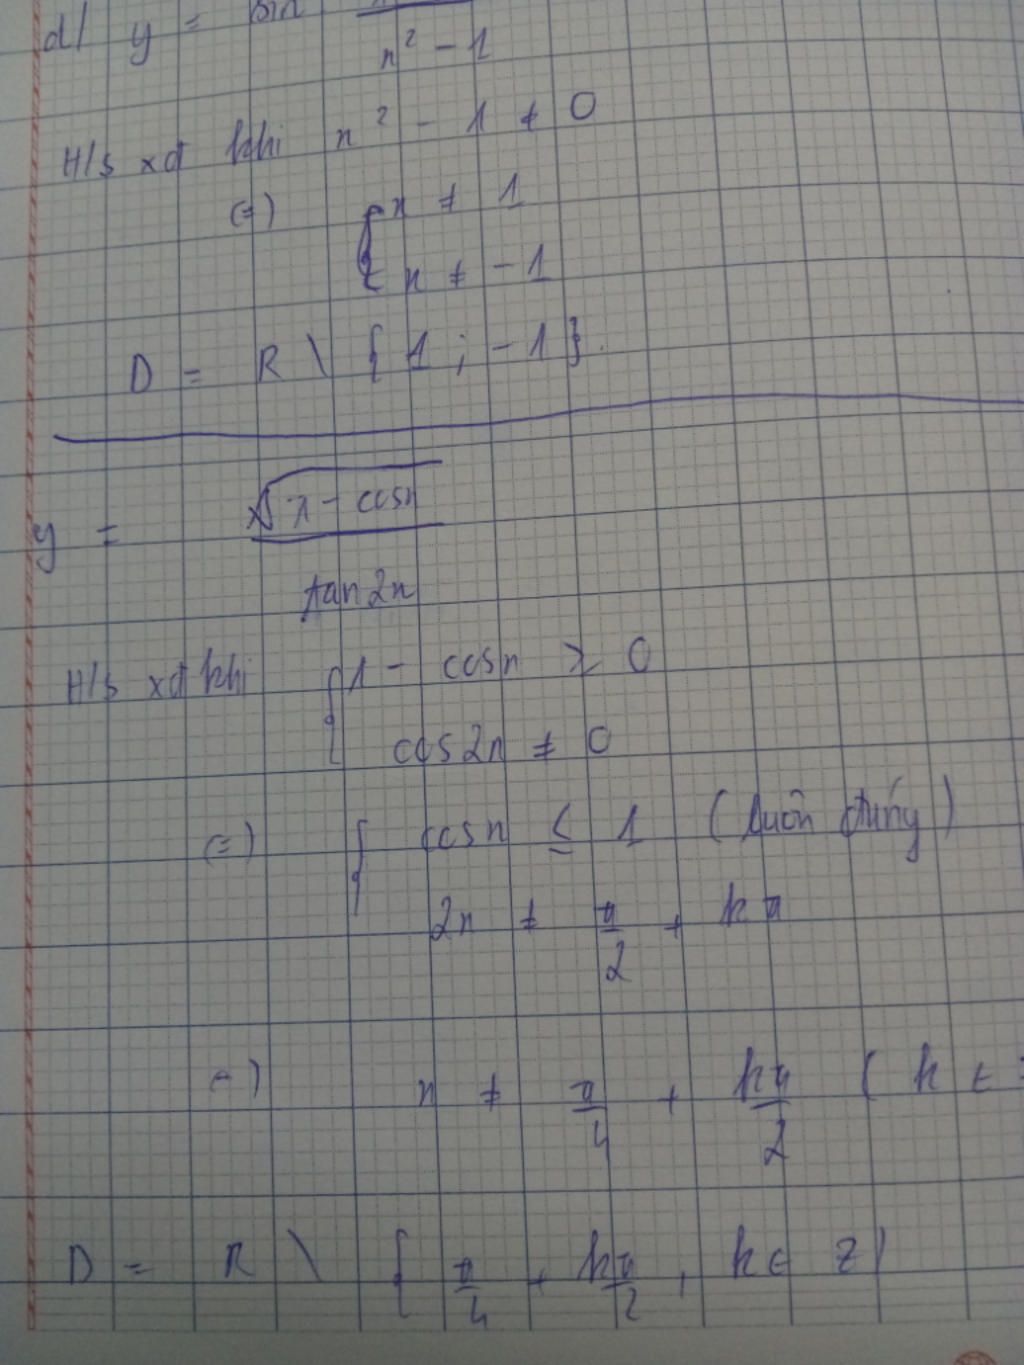 d/ y = sin
x² - 1
H/s xđ khi x² - 1 ≠ 0
(=) { x ≠ 1
x ≠ -1
D = R \ { 1 ; -1 }.
y = √1 - cosx
tan2x
H/s xđ khi { 1 - cosx ≥ 0
cos2x ≠ 0
(=) { cosx ≤ 1 (luôn đúng)
2x ≠ π/2 + kπ
(=) x ≠ π/4 + kπ/2 ( k ∈
D = R \ { π/4 + kπ/2 , k ∈ Z }